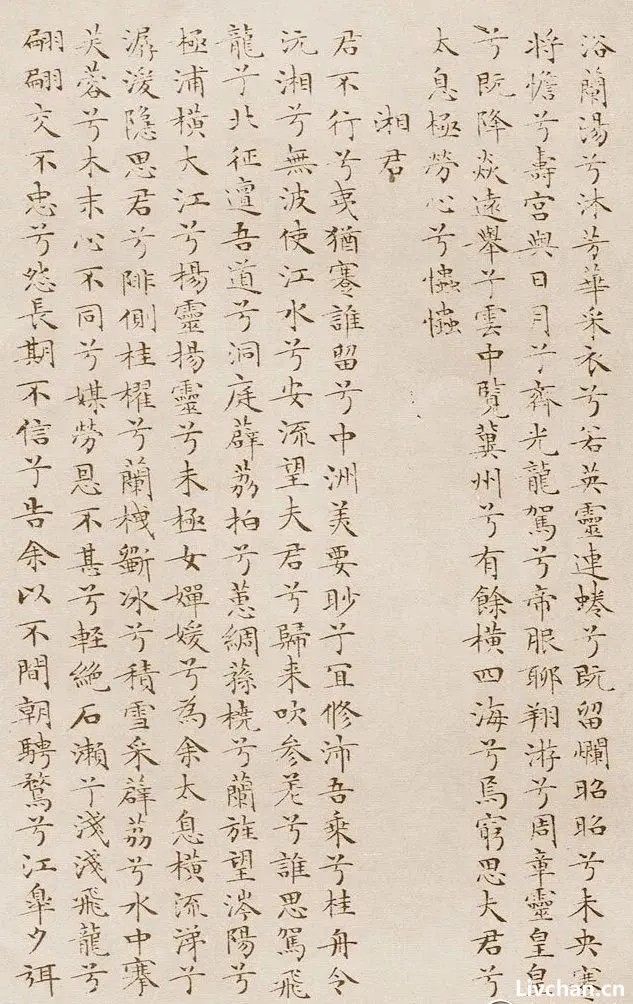 浴蘭湯兮沐芳華采衣兮若英靈連蜷兮既留爛昭昭兮未央蹇
将憺兮壽宮與日月兮齊光龍駕兮帝服聊翔游兮周章靈皇皇
兮既降焱遠舉兮雲中覽冀州兮有餘橫四海兮焉窮思夫君兮
太息極勞心兮𢥞𢥞
湘君
君不行兮夷猶蹇誰留兮中洲美要眇兮宜修沛吾乘兮桂舟令
沅湘兮無波使江水兮安流望夫君兮歸来吹参差兮誰思駕飛
龍兮北征邅吾道兮洞庭薜荔拍兮蕙綢蓀橈兮蘭旌望涔陽兮
極浦橫大江兮楊靈揚靈兮未極女嬋媛兮為余太息橫流涕兮
潺湲隱思君兮陫側桂櫂兮蘭枻斵冰兮積雪采薜荔兮水中搴
芙蓉兮木末心不同兮媒勞恩不甚兮輕絶石瀨兮淺淺飛龍兮
翩翩交不忠兮怨長期不信兮告余以不閒朝騁騖兮江皋夕弭
Livchan.cn